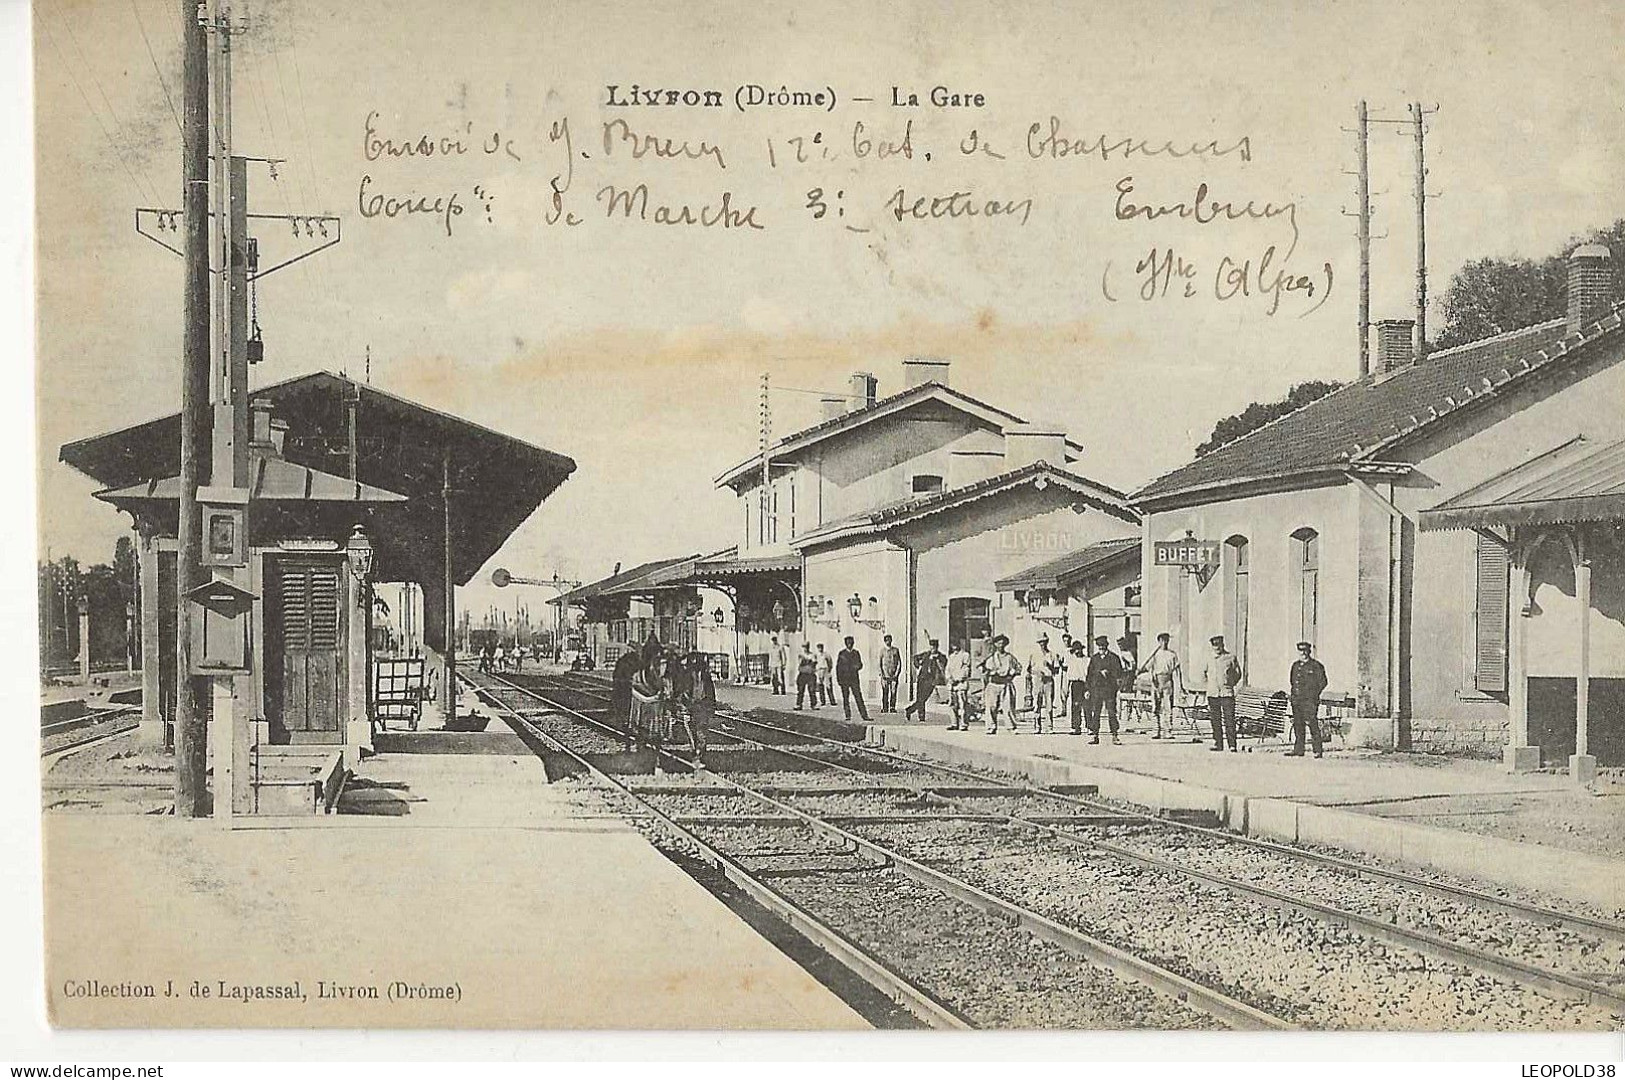 Livron (Drôme) — La Gare
Envoi de J. 12e Bat. de Chasseurs
de Marche 3e section Embrun
(Htes Alpes)
LIVRON
BUFFET
Collection J. de Lapassal, Livron (Drôme)
www.delcampe.net
LEOPOLD38